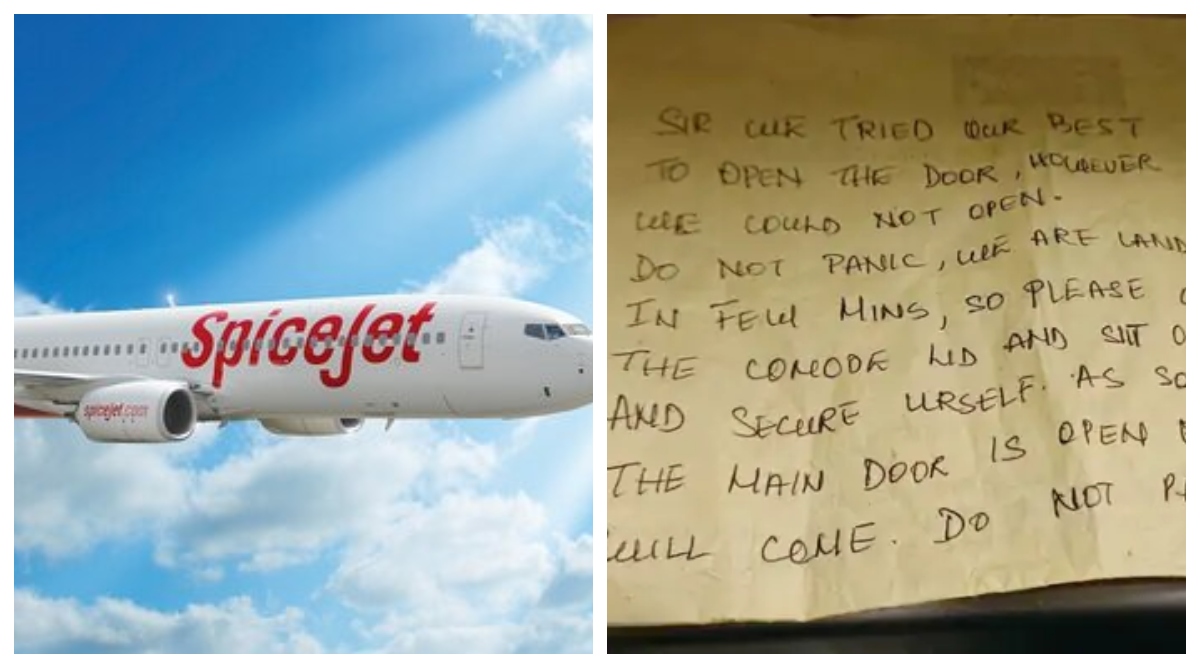 SpiceJet
spicejet.com
SIR WE TRIED OUR BEST
TO OPEN THE DOOR, HOWEVER
WE COULD NOT OPEN.
DO NOT PANIC, WE ARE LAND
IN FEW MINS, SO PLEASE
THE COMODE LID AND SIT O
AND SECURE URSELF. AS SO
THE MAIN DOOR IS OPEN
WILL COME. DO NOT PA